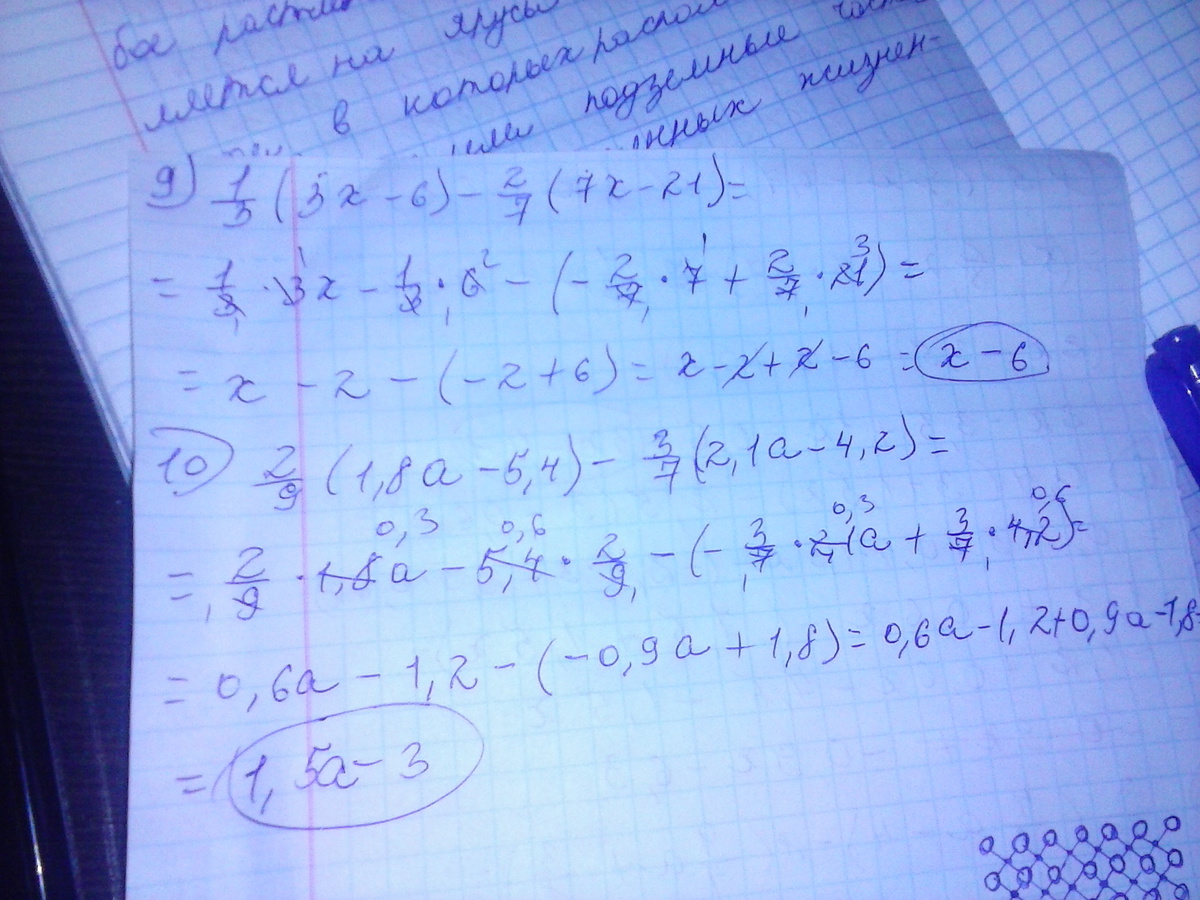 бое
мяется на ярусы
в которых распол
подземные
жизнен-
9) 1/3 (3x - 6) - 2/7 (7x - 21) =
= 1/3 · 3x - 1/3 · 6 - (- 2/7 · 7 + 2/7 · 21) =
= x - 2 - (-2 + 6) = x - 2 + 2 - 6 = x - 6
10) 2/9 (1,8a - 5,4) - 3/7 (2,1a - 4,2) =
0,3 0,6 0,3 0,6
= 2/9 · 1,8a - 5,4 · 2/9 - (- 3/7 · 2,1a + 3/7 · 4,2) =
= 0,6a - 1,2 - (-0,9a + 1,8) = 0,6a - 1,2 + 0,9a - 1,8 =
= 1,5a - 3